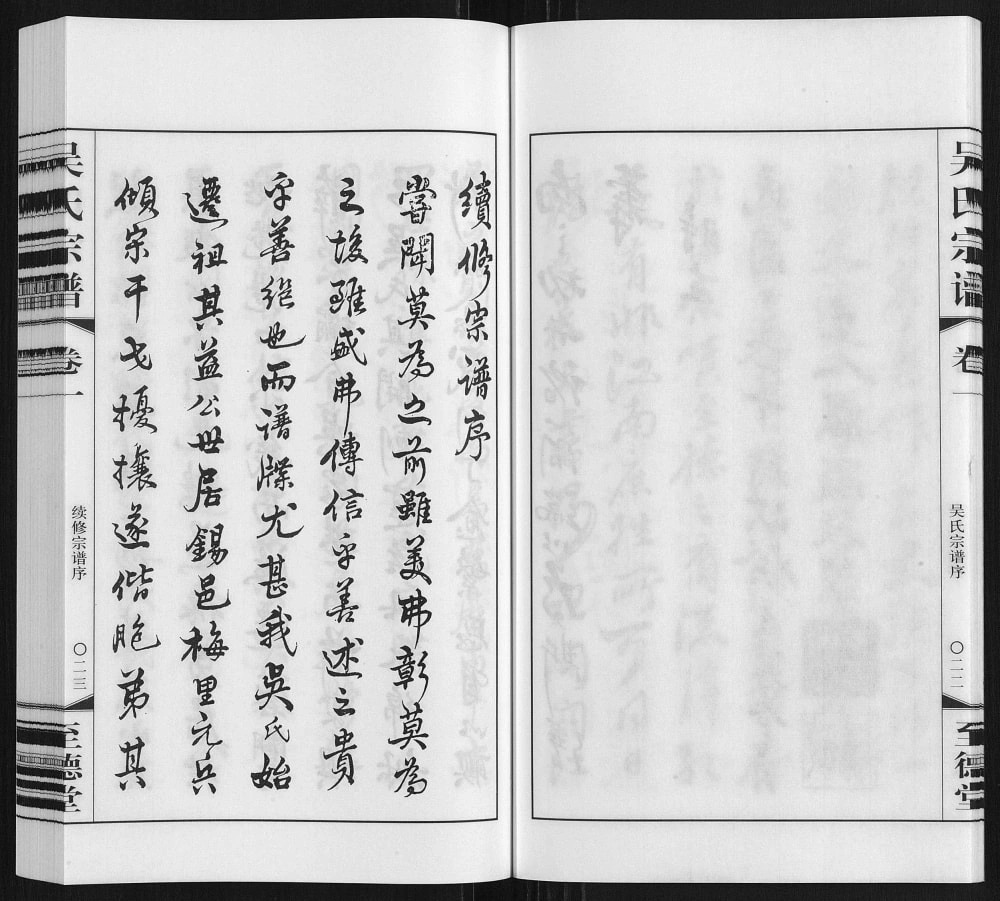 吴氏宗谱
卷一
吴氏宗谱序
〇二二
至德堂
續修宗谱序
嘗聞莫為之前雖美弗彰莫為
之後雖盛弗傳信乎善述之貴
乎善继也而谱牒尤甚我吳氏始
遷祖其益公世居錫邑梅里元兵
傾宗干戈擾攘遂偕胞弟其
吴氏宗谱
卷一
续修宗谱序
〇二三
至德堂